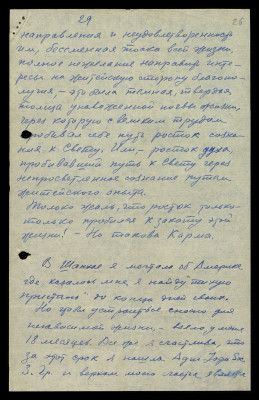 29
26
направления и неудовлетворенности
им, бессменная тоска всей жизни,
полное нежелание направить инте-
ресы на житейскую сторону благопо-
лучия – это была темная, твердая
толща унавоженной почвы жизни,
через которую с великим трудом
пробивал себе путь росток созна-
ния к Свету. Или – росток духа,
пробивавший путь к Свету через
непросветленное сознание путем
житейского опыта.
Только жаль, что росток только-
только пробился к закату этой
жизни! – Но такова Карма.
В Шанхае я мечтала об Америке,
где, казалось мне, я найду тихую
пристань до конца дней своих.
Но я устроиться сносно для
независимой жизни – всего, у меня
18 месяцев. Все же я счастлива, что
за этот срок я нашла
З. Гр. и верном моего